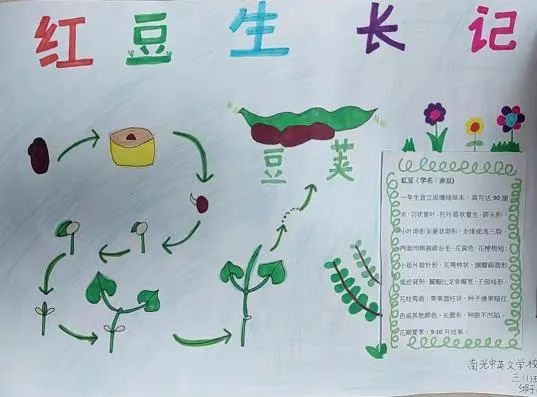 红豆生长记
豆荚
红豆（学名：赤豆）
一年生直立或缠绕草本，高可达90厘
米，羽状复叶，托叶盾状着生，箭头形，
小叶卵形至菱状卵形，全缘或浅三裂，
两面均稍被疏长毛，花黄色，花梗极短，
小苞片披针形，花萼钟状，旗瓣扁圆形
或近肾形，翼瓣比龙骨瓣宽，子房线形，
花柱弯曲，荚果圆柱状，种子通常暗红
色或其他颜色，长圆形，种脐不凹陷，
花期夏季，9-10月结果。
南光中英文学校
三(1)